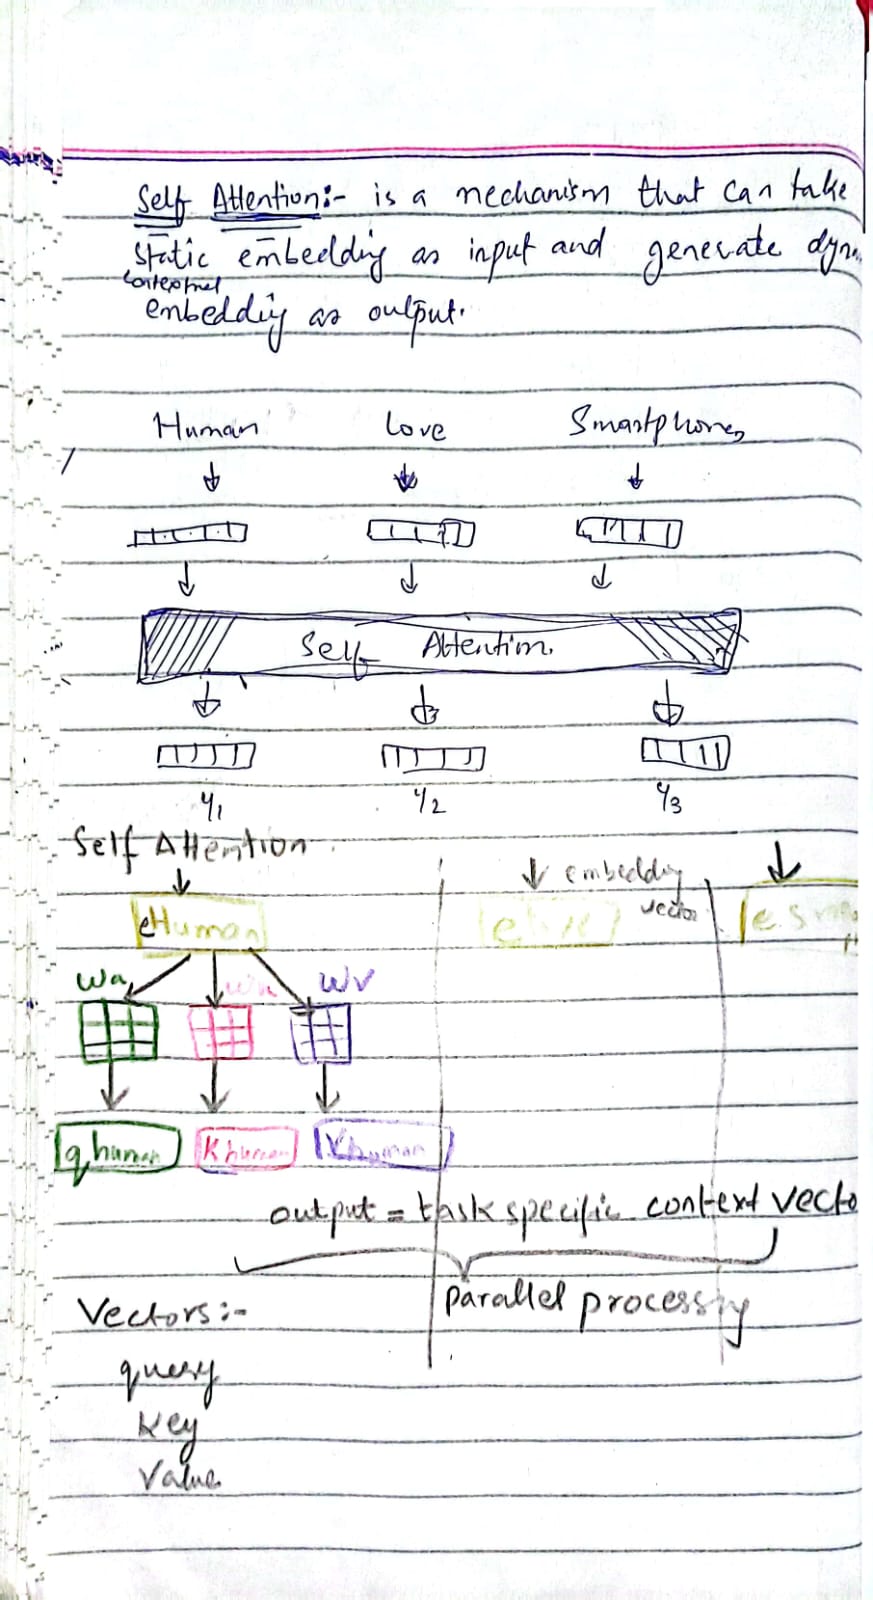 Self Attention:- is a mechanism that can take
static embedding as input and generate dyn
contextual
embedding as output.
Human Love Smartphones
Self Attention
y1 y2 y3
Self Attention
embedding
vector
eHuman e
Wq Wv
qhuman Khuman Vhuman
output = task specific context vecto
parallel processing
Vectors:-
query
key
Value